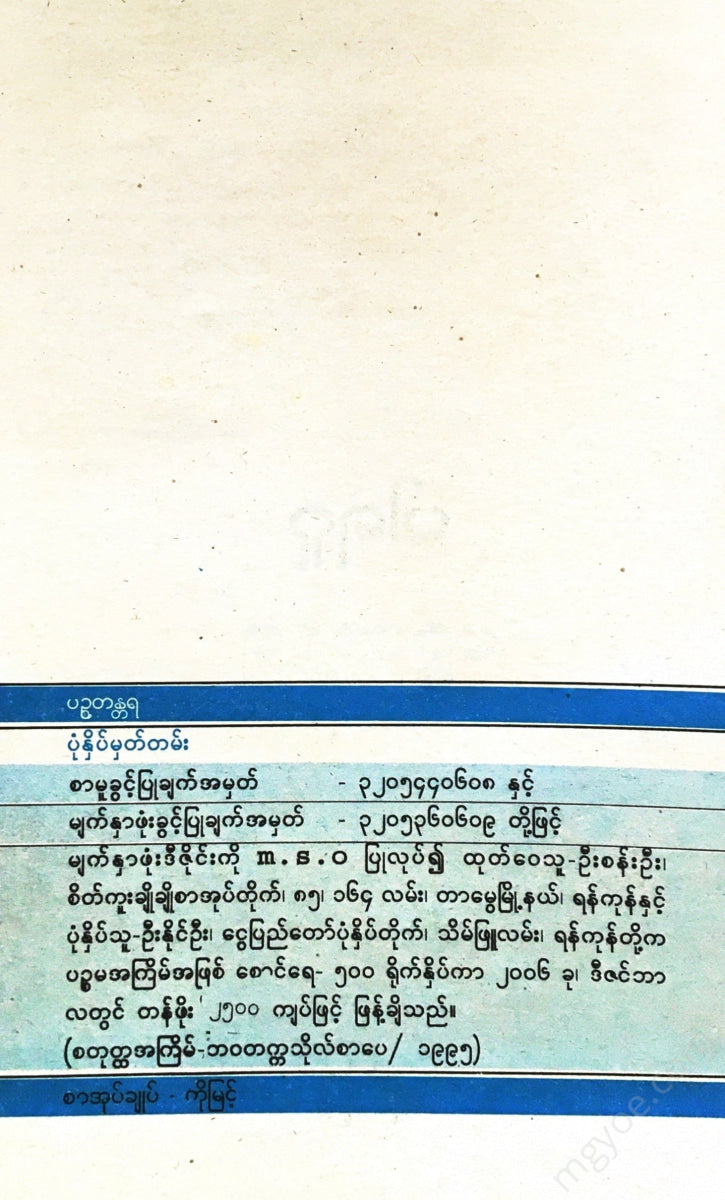 ပဥ္စတန္တရ
ပုံနှိပ်မှတ်တမ်း
စာမူခွင့်ပြုချက်အမှတ် - ၃၂၀၅၄၄၀၆၀၈ နှင့်
မျက်နှာဖုံးခွင့်ပြုချက်အမှတ် - ၃၂၀၅၃၆၀၆၀၉ တို့ဖြင့်
မျက်နှာဖုံးဒီဇိုင်းကို m.s.o ပြုလုပ်၍ ထုတ်ဝေသူ-ဦးစန်းဦး၊
စိတ်ကူးချိုချိုစာအုပ်တိုက်၊ ၈၅၊ ၁၆၄ လမ်း၊ တာမွေမြို့နယ်၊ ရန်ကုန်နှင့်
ပုံနှိပ်သူ-ဦးနိုင်ဦး၊ ငွေပြည်တော်ပုံနှိပ်တိုက်၊ သိမ်ဖြူလမ်း၊ ရန်ကုန်တို့က
ပဉ္စမအကြိမ်အဖြစ် စောင်ရေ- ၅၀၀ ရိုက်နှိပ်ကာ ၂၀၀၆ ခု၊ ဒီဇင်ဘာ
လတွင် တန်ဖိုး ၂၅၀၀ ကျပ်ဖြင့် ဖြန့်ချိသည်။
(စတုတ္ထအကြိမ်-ဘဝတက္ကသိုလ်စာပေ/ ၁၉၉၅)
စာအုပ်ချုပ် - ကိုမြင့်